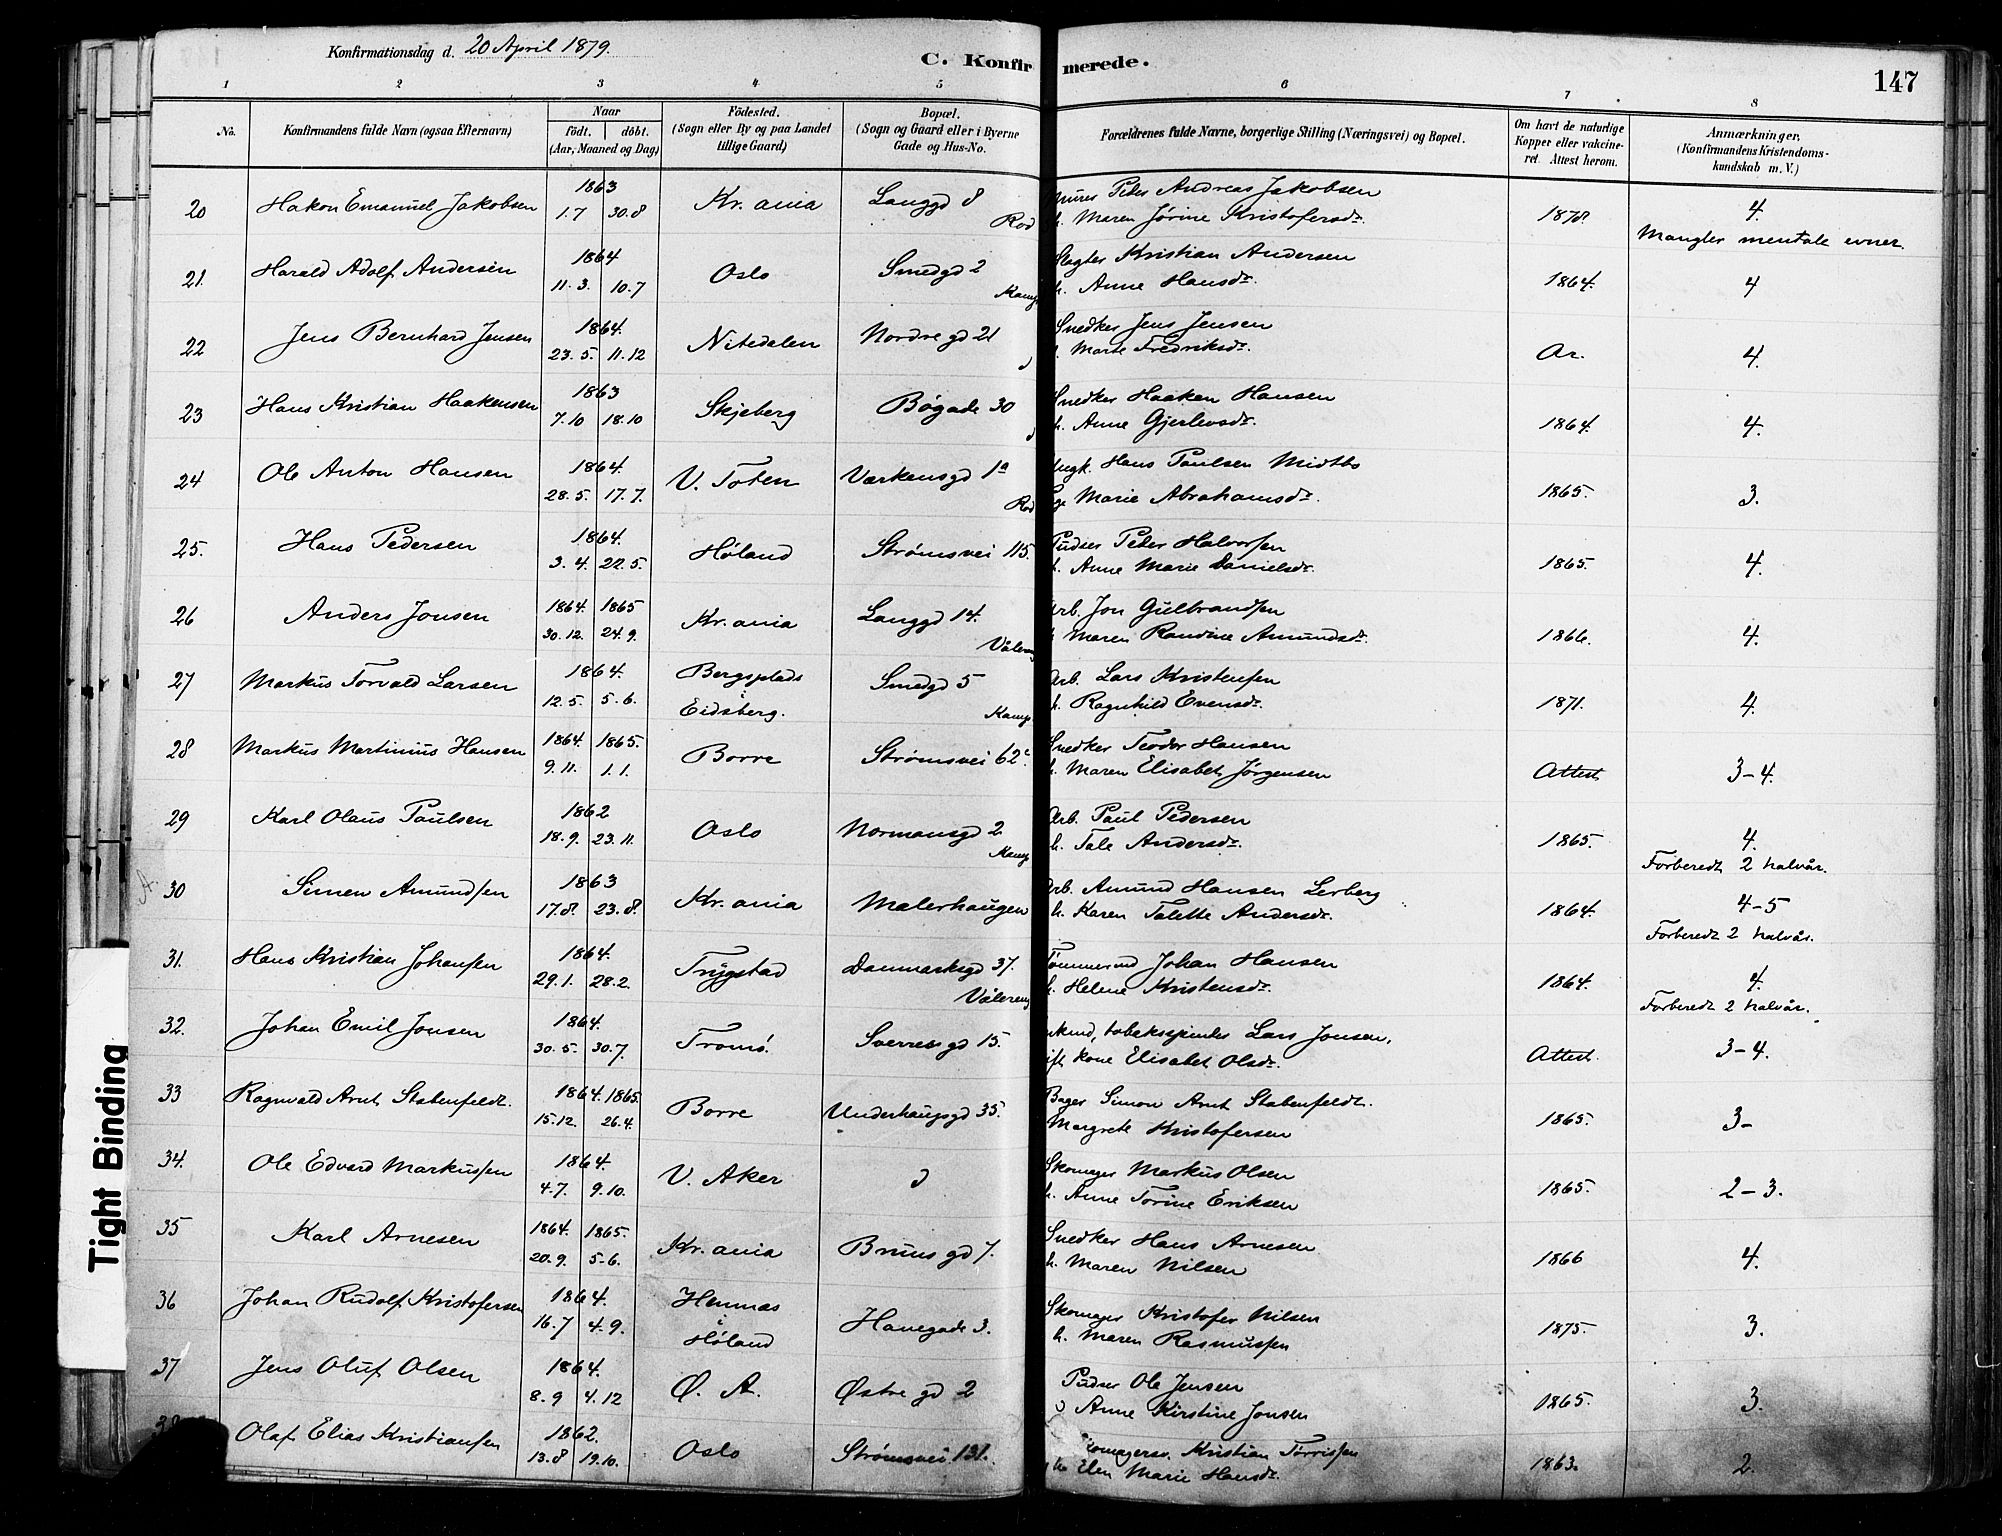 Konfirmationsdag d. 20 April 1879.
C. Konfirmerede.
147
1 2 3 4 5 6 7 8
No.
Konfirmandens fulde Navn (ogsaa Efternavn)
Naar
födt. | döbt.
(Aar, Maaned og Dag)
Födested.
(Sogn eller By og paa Landet
tillige Gaard)
Bopæl.
(Sogn og Gaard eller i Byerne
Gade og Hus-No.
Forældrenes fulde Navne, borgerlige Stilling (Næringsvei) og Bopæl.
Om havt de naturlige
Kopper eller vakcine-
ret. Attest herom.
Anmærkninger.
(Konfirmandens Kristendoms-
kundskab m. V.)
20 Hakon Emanuel Jakobsen 1863 1.7 30.8 Kr.ania Langgd 8 Peter Andreas Jakobsen
Maren Jørine Kristofersdr. 187 4.
Mangler mentale evner.
21. Harald Adolf Andersen 1864 11.3. 10.7 Oslo Smedgd 2 Kamp Slagter Kristian Andersen
h. Anne Hansdr. 1864. 4
22 Jens Bernhard Jensen 1864. 23.5. 11.12 Nitedalen Nordregd 21 Snedker Jens Jensen
Marte Fredriksdr. Ar. 4.
23 Hans Kristian Haakensen 1863 7.10 18.10 Skjeberg Bøgade 30 Snedker Haaken Hansen
h. Anne Gjerlevsdr. 1864. 4.
24 Ole Anton Hansen 1864. 28.5. 17.7. V. Toten Værkensgd 1a Hans Paulsen Midtbo
Marie Abrahamsdr. 1865. 3.
25. Hans Pedersen 1864. 3.4. 22.5. Høland Strømsvei 115. Pudser Peter Halvorsen
h. Anne Marie Danielsdr. 1865. 4.
26 Anders Jonsen 1864. 1865 30.12. 24.9. Kr.ania Langgd 14. Vålereng Arb. Jon Gulbrandsen
Maren Randine Amundsdr. 1866. 4.
27 Markus Torvald Larsen 1864. 12.5. 5.6. Bergsplads
i
Eidsberg. Smedgd 5 Kamp Arb. Lars Kristensen
h. Ragnhild Evensdr. 1871. 4.
28 Markus Martinius Hansen 1864. 1865. 9.11. 1.1. Borre Strømsvei 62c. Snedker Teodor Hansen
h. Maren Elisabet Jørgensen Attest 3-4.
29 Karl Olaus Paulsen 1862 18.9. 23.11. Oslo Normansgd 2 Kamp Arb. Paul Pedersen
h. Tale Andersdr. 1865. 4.
Forberedt 2 halvår.
30 Simen Amundsen 1863 17.8. 23.8. Kr.ania Malerhaugen Arb. Amund Hansen Lerberg
h. Karen Talette Andersdr. 1864. 4-5
Forberedt 2 halvår.
31. Hans Kristian Johansen 1864. 29.1. 28.2. Trygstad Danmarksgd 37. Vålereng Johan Hansen
h. Helene Kristensdr. 1864. 4.
Forberedt 2 halvår.
32. Johan Emil Jonsen 1864. 30.5. 30.7. Tromö. Sverresgd 15. tobaksspinder Lars Jonsen,
kone Elisabet Olsdr. Attest. 3-4.
33 Ragnvald Arnt Stabenfeldt. 1864. 1865. 15.12. 26.4. Borre Underhaugsgd 35. Bager Simon Arnt Stabenfeldt.
Margrete Kristofersen 1865. 3-
34. Ole Edvard Markussen 1864. 4.7. 9.10. V. Aker Skomager Markus Olsen
h. Anne Torine Eriksen 1865. 2-3.
35 Karl Arnesen 1864. 1865. 20.9. 5-6. Kr.ania Brunsgd 7. Snedker Hans Arnesen
h. Maren Nilsen 1866 4.
36 Johan Rudolf Kristofersen 1864. 16.7 4.9. Hemnæs
i
Høland Hanegade 3. Skomager Kristofer Nilsen
h. Maren Rasmussen 1875. 3.
37 Jens Oluf Olsen 1864. 8.9 4.12 Ø. A. Østregd 2 Pudser Ole Jensen
Anne Kirstine Jonsen 1865. 3.
Olaf Elias Kristiansen 1862. 13.8 19.10. Oslo Strømsvei 131. Kristian Torrissen
Elen Marie Hansdr. 1863. 2.
Tight Binding